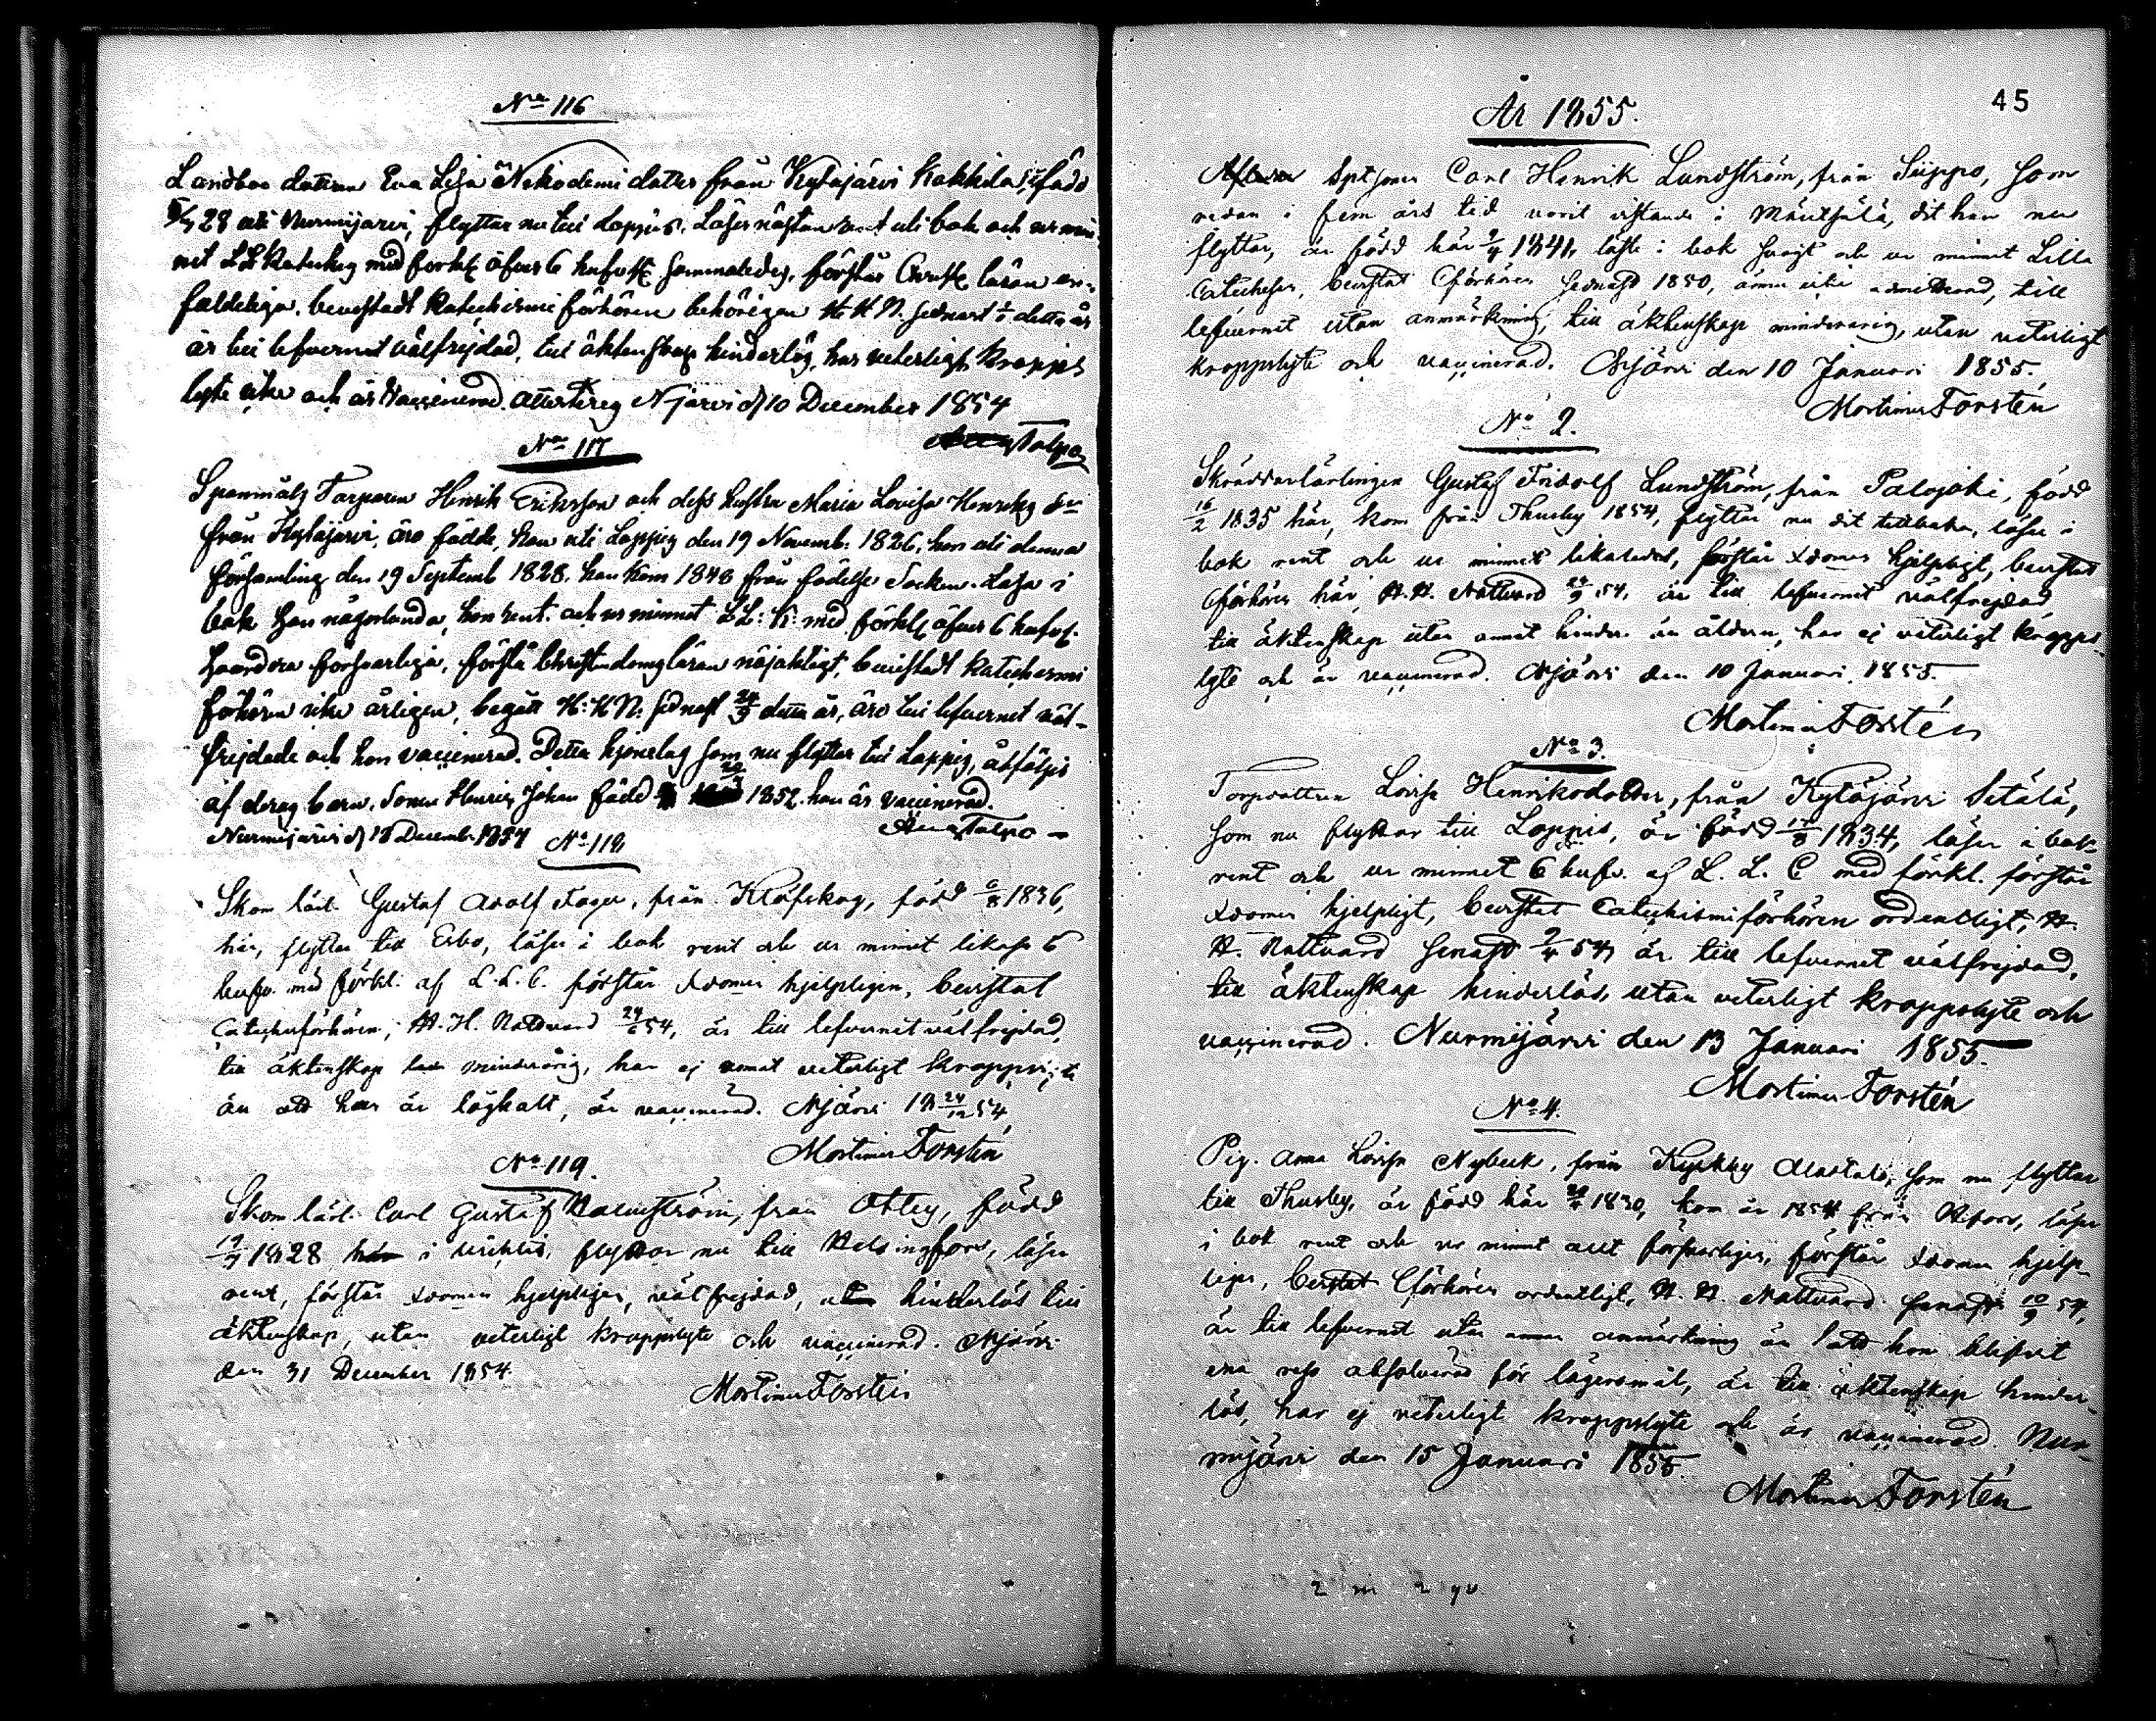 No 116
Landboe dottren Eva Lisa Nikodemi dotter från Kytäjärvi Kokkila, född
28 uti Nurmijärvi, flyttar nu till Loppis. Läser nästan rent uti bok och ur min-
net LL Kateches med förkl öfver 6 hufvst sammaledes, förstår Christ läran en-
faldeliga, bevistadt Katechismi förhören behörigen H H N. sednast detta år
är till lefvernet välfrejdad, till äktenskap hinderlös, har veterligt kropps
lyte icke och är vaccinerad. Attesteras Njärvi d 10 December 1854
Talpo
No 117
Spanmåls Torparen Henrik Eriksson och dess hustru Maria Lovisa Henriks dr
från Kytäjärvi, äro födde, han uti Loppis den 19 Novemb. 1826, hon uti denna
församling den 19 Septemb 1828. han kom 1848 från födelse Socken. Läsa i
bok han någorlunda, hon rent. och ur minnet LL: K: med förkl öfver 6 hufvst.
hvardera försvarliga, förstå Christendoms läran nöjaktigt, bevistadt Katechesmi
förhören icke årligen, begått H: H N: sednast 24/9 detta år, äro till lefvernet väl-
frejdade och hon vaccinerad. Detta hjonelag som nu flyttar till Loppis, åtföljes
af deras barn, Sonen Henric Johan född 1852. han är vaccinerad.
Nurmijärvi d 18 Decemb. 1854 Talpo
No 118
Skom lärl. Gustaf Adolf Fager, från Klöfskog, född 6/8 1836,
här, flyttar till Esbo, läser i bok rent och ur minnet likaså 6
hufv. med förkl. af L. L. C. förstår Xdomen hjelpligen, bevistat
Catechesförhören, H. H. Nattvard 24/6 54, är till lefvernet välfrejdad,
till äktenskap minderårig, har ej annat veterligt kroppslyte
än att han är låghalt, är vaccinerad. Njärvi 18 24/12 54
Mortimer Forstén
No 119.
Skom lärl. Carl Gustaf Malmström, från Ottey, född
1828 i Wichtis, flyttar nu till Helsingfors, läser
rent, förstår Xdomen hjelpligen, välfrejdad, hinderlös till
äktenskap, utan veterligt kroppslyte och vaccinerad. Njärvi
den 31 December 1854.
Mortimer Forstén
År 1855.
45
Sptjonen Carl Henrik Lundström, från Siippo, som
redan i fem års tid varit vistande i Mäntsälä, dit han nu
flyttar, är född här 9/4 1841, läste i bok svagt och ur minnet Lilla
Catechesen, bevistat Cförhören sednast 1850, ännu icke admitterad, till
lefvernet utan anmärkning, till äktenskap minderårig, utan veterligt
kroppslyte och vaccinerad. Njärvi den 10 Januari 1855.
Mortimer Forstén
No 2.
Skräddarlärlingen Gustaf Fridolf Lundström, från Palojoki, född
16/2 1835 här, kom från Thusby 1854, flyttar nu dit tillbaka, läser i
bok rent och ur minnet likaledes, förstår Xdomen hjelpligt, bevistat
Cförhören här, H. H. Nattvard 54, är till lefvernet välfrejdad,
till äktenskap utan annat hinder än åldern, har ej veterligt kropps-
lyte och är vaccinerad. Njärvi den 10 Januari 1855.
Mortimer Forstén
No 3.
Torpdottren Lovisa Henriksdotter, från Kytäjärvi Setälä,
som nu flyttar till Loppis, är född 1834, läser i bok
rent och ur minnet 6 hufv. af L. L. C med förkl. förstår
Xdomen hjelpligt, bevistat Catechismiförhören ordentligt, H.
H. Nattvard senast 9/4 54, är till lefvernet välfrejdad,
till äktenskap hinderlös, utan veterligt kroppslyte och
vaccinerad. Nurmijärvi den 13 Januari 1855.
Mortimer Forstén
No 4.
Pig. Anna Lovisa Nybeck, från Kyrkby som nu flyttar
till Thusby, är född här 1830, kom år 1854 från Hfors, läser
i bok rent och ur minnet allt försvarligen, förstår Xdomen hjelp-
ligen, bevistat Cförhören ordentligt, H. H. Nattvard senast 10/9 54,
är till lefvernet utan annan anmärkning än att hon blifvit
ena resa absolverad för lägersmål, är till äktenskap hinder-
lös, har ej veterligt kroppslyte och är vaccinerad. Nur-
mijärvi den 15 Januari 1855.
Mortimer Forstén